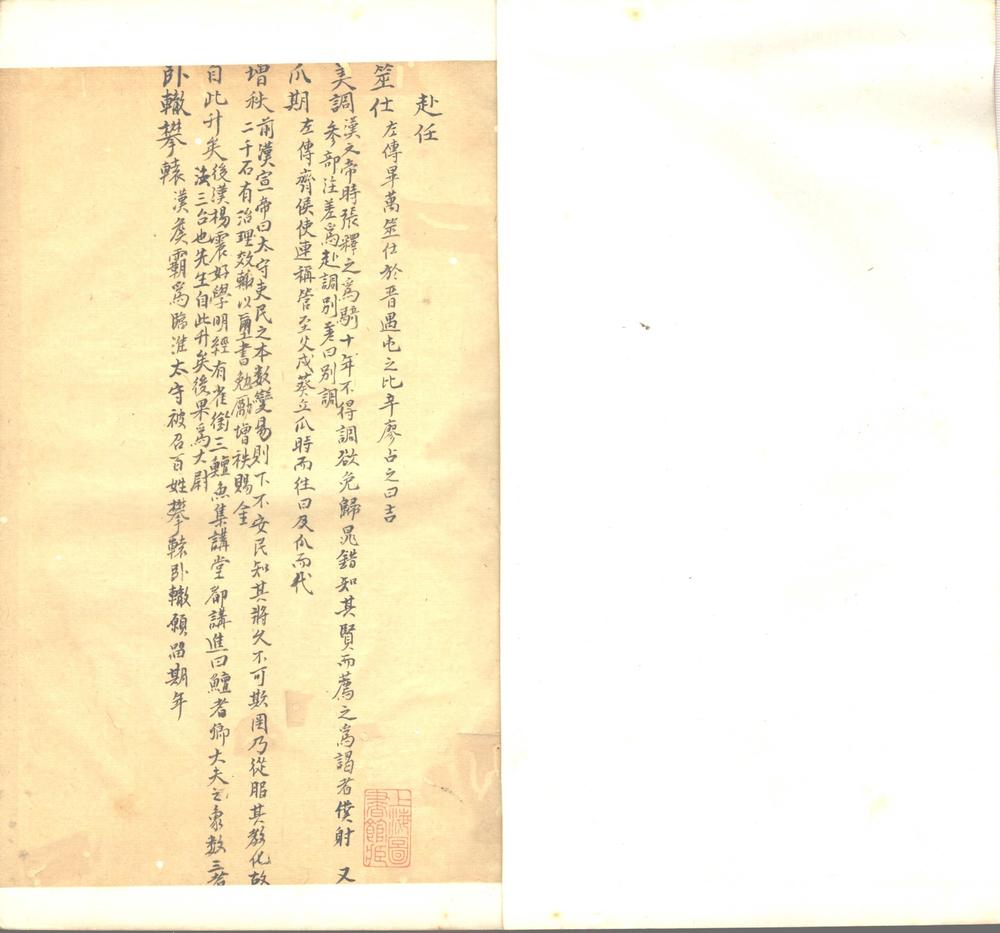 赴任
筮仕 左傳畢萬筮仕於晋遇屯之比辛廖占之曰吉
美調 漢文帝時張釋之爲騎十年不得調欲免歸晁錯知其賢而薦之爲謁者僕射 又
參部注差爲赴調別差曰別調
瓜期 左傳齊侯使連稱管至父戍葵丘瓜時而往曰及瓜而代
增秩 前漢宣帝曰太守吏民之本數變易則下不安民知其將久不可欺罔乃從服其教化故
二千石有治理效輙以璽書勉勵增秩賜金
自此升矣 後漢楊震好學明經有雀銜三鱣魚集講堂都講進曰鱣者卿大夫之象數三者
法三台也先生自此升矣後果爲大尉
卧轍攀轅 漢矦霸爲臨淮太守被召百姓攀轅卧轍願畱期年
上海圖書館藏